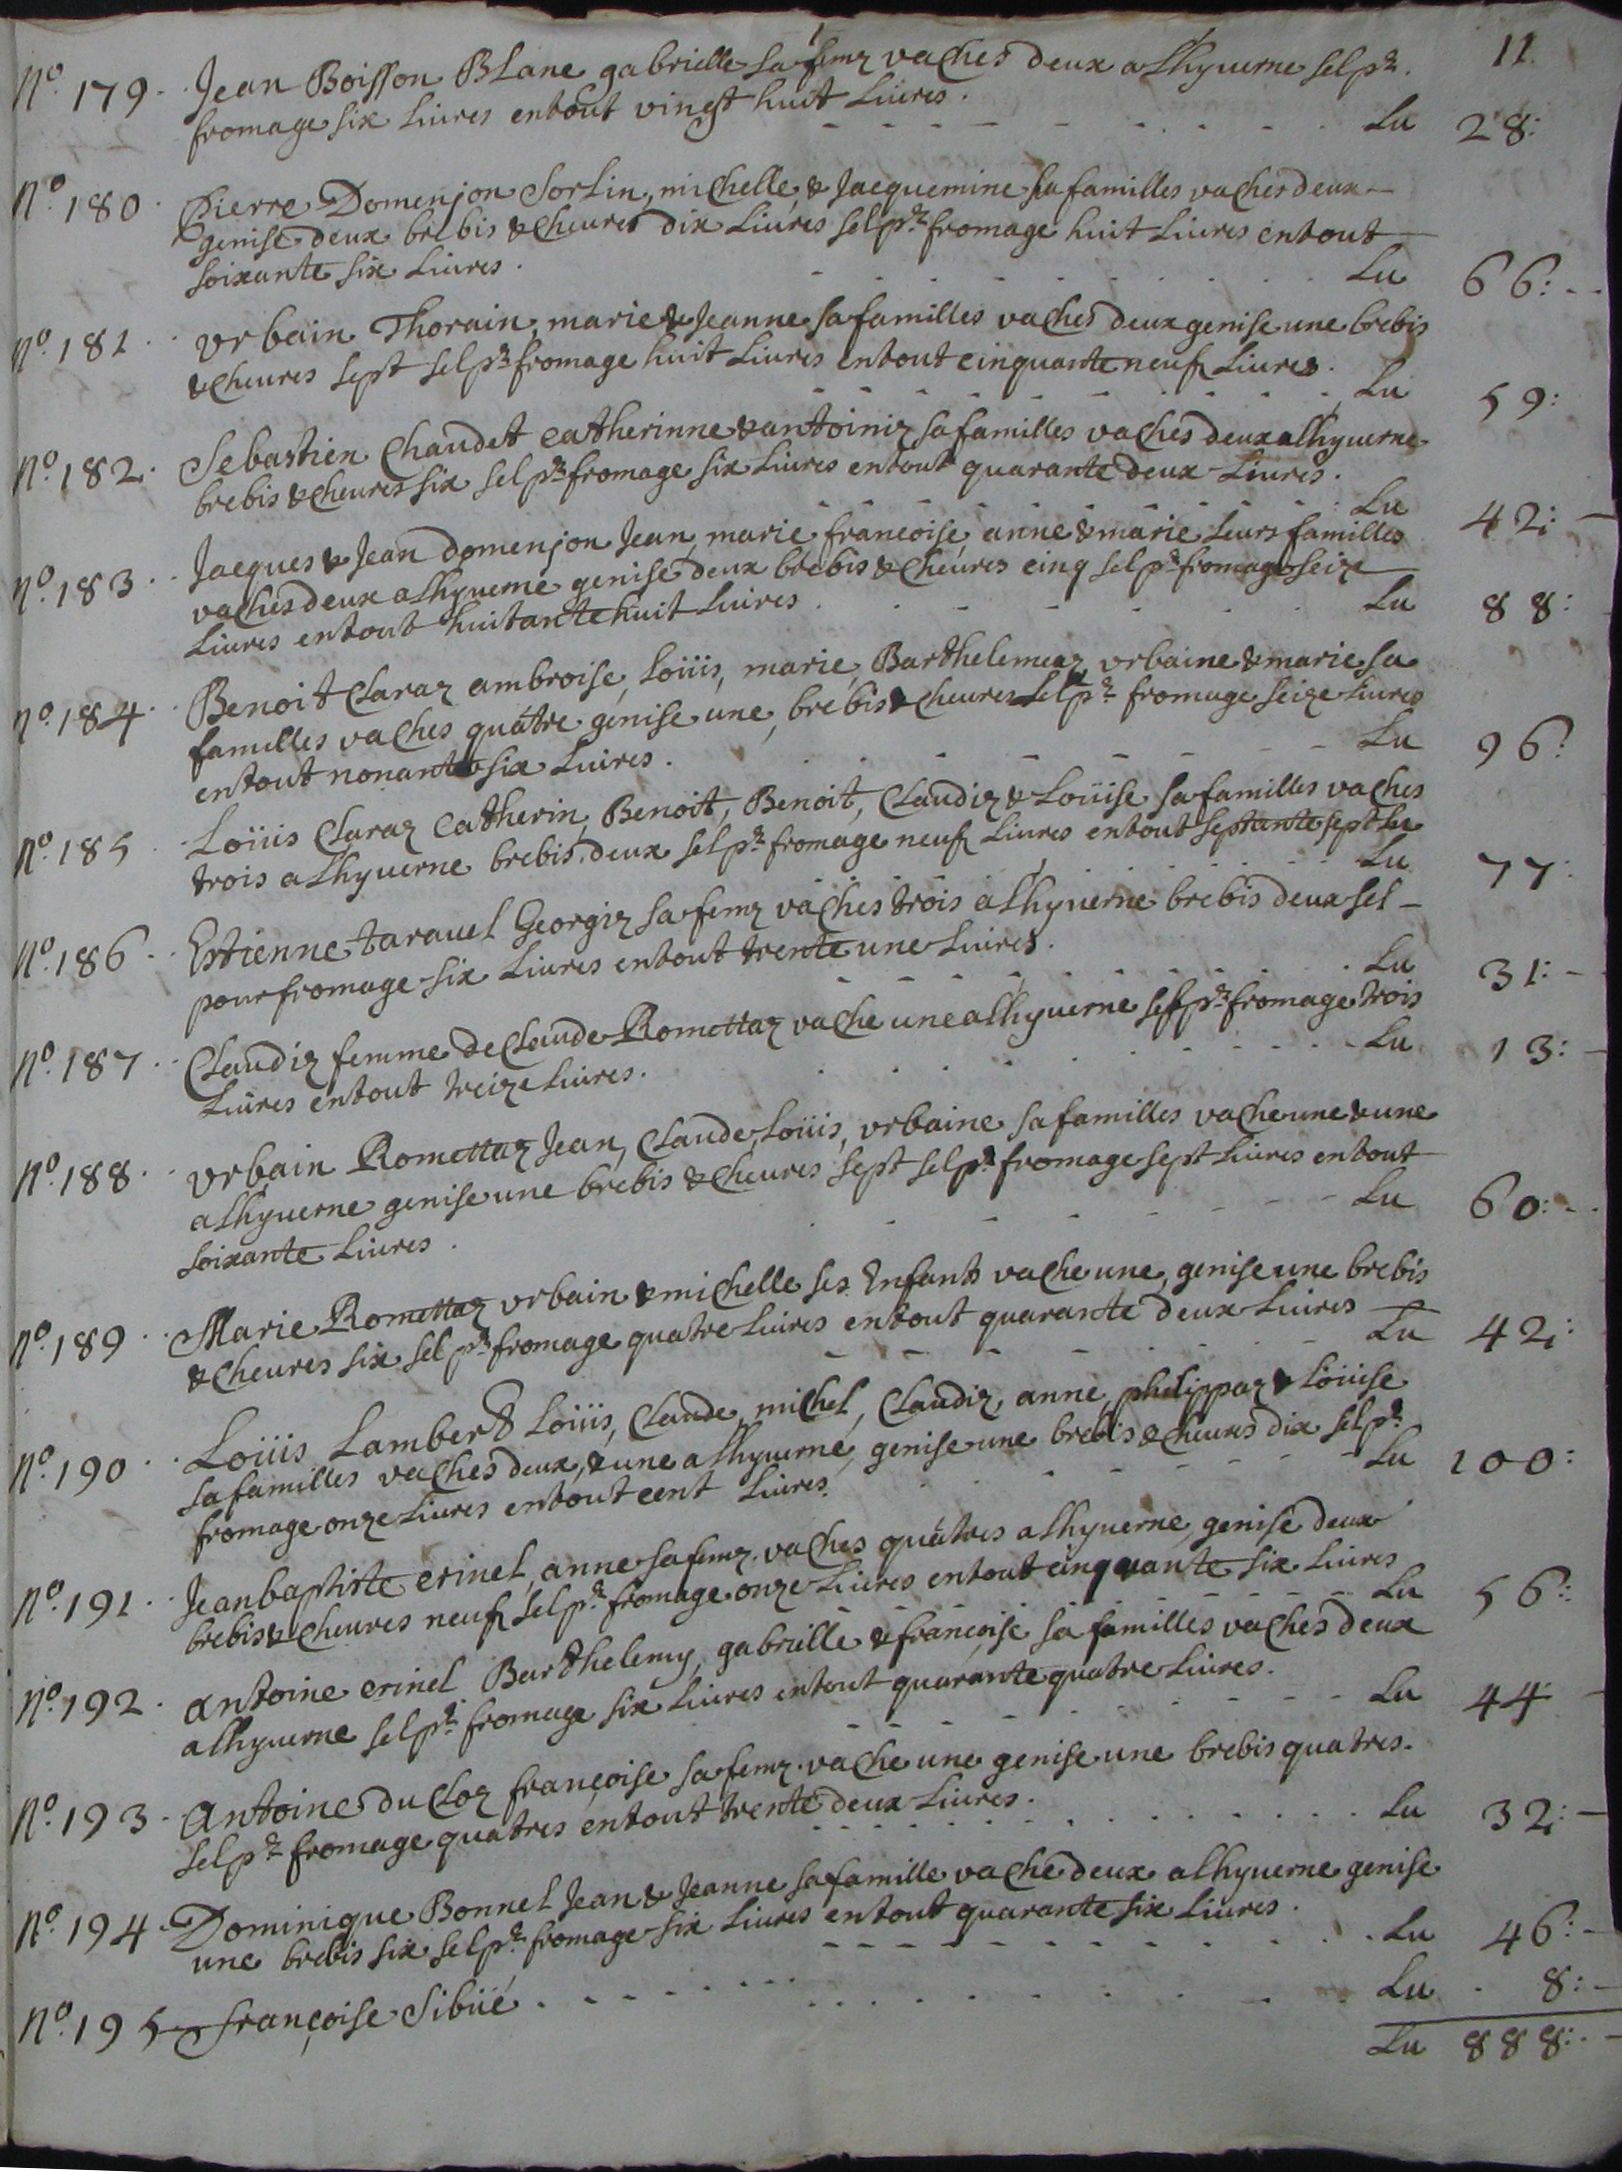 11
No. 179. Jean Boisson BLanc gabrielle sa femz vaches deux a Lhyuerne sel pr.
fromage six Liures entout vingt huit Liures. Lu 28:
No. 180. Pierre Domenjon Sorlin, michelle, & Jacquemine sa familles vaches deux
genise deux brebis & cheures dix Liures sel pr. fromage huit Liures entout
soixante six Liures. Lu 66:
No. 181. vrbain Thorain, marie & Jeanne sa familles vaches deux genise une brebis
& cheures sept sel pr. fromage huit Liures entout cinquante neuf Liures. Lu 59:
No. 182. Sebastien Chaudet Catherinne & antoiniz sa familles vaches deux a lhyuerne
brebis & cheures six sel pr. fromage six Liures entout quarante deux Liures. Lu 42:
No. 183. Jacques & Jean Domenjon Jean, marie francoise, anne & marie Leurs familles
vaches deux a Lhyuerne genise deux brebis & cheures cinq sel pr. fromage seize
Liures entout huitante huit Liures. Lu 88:
No. 184. Benoit Claraz ambroise, Loüis, marie, Barthelemeaz vrbaine & marie sa
familles vaches quatre genise une, brebis & cheures sel pr. fromage seize Liures
entout nonante six Liures. Lu 96:
No. 185. Loüis Claraz Catherin, Benoit, Benoit, Claudiz & Loüise sa familles vaches
trois a Lhyuerne brebis deux sel pr. fromage neuf Liures entout septante sept Lu
Lu 77:
No. 186. Estienne tarauel Georgiz sa femz vaches trois a Lhyuerne brebis deux sel
pour fromage six Liures entout trente une Liures. Lu 31:
No. 187. Claudiz femme de Claude Romettaz vache une a Lhyuerne sel pr. fromage trois
Liures entout treize Liures. Lu 13:
No. 188. vrbain Romettaz Jean, Claude, Loüis, vrbaine sa familles vache une & une
a Lhyuerne genise une brebis & cheures sept sel pr. fromage sept Liures entout
soixante Liures. Lu 60:
No. 189. Marie Romettaz vrbain & michelle ses Enfants vache une, genise une brebis
& cheures six sel pr. fromage quatre Liures entout quarante deux Liures Lu 42:
No. 190. Loüis Lambert Loüis, Claude, michel, Claudiz, anne, philippaz & Loüise
sa familles vaches deux, & une a Lhyuerne, genise une brebis & cheures dix sel pr.
fromage onze Liures entout cent Liures. Lu 100:
No. 191. Jean baptiste crinel, anne sa femz. vaches quatres a Lhyuerne, genise deux
brebis & cheures neuf sel pr. fromage onze Liures entout cinquante six Liures Lu 56:
No. 192. antoine crinel Barthelemy, gabrielle & françoise sa familles vaches deux
a Lhyuerne sel pr. fromage six Liures entout quarante quatre Liures. Lu 44
No. 193. Antoine du Cloz françoise sa femz. vache une genise une brebis quatres.
sel pr. fromage quatres entout trente deux Liures. Lu 32:
No. 194. Dominique Bonnel Jean & Jeanne sa famille vache deux a lhyuerne genise
une brebis six sel pr. fromage six Liures entout quarante six Liures. Lu 46:
No. 195 françoise Sibüé. Lu 8:
Lu 888: